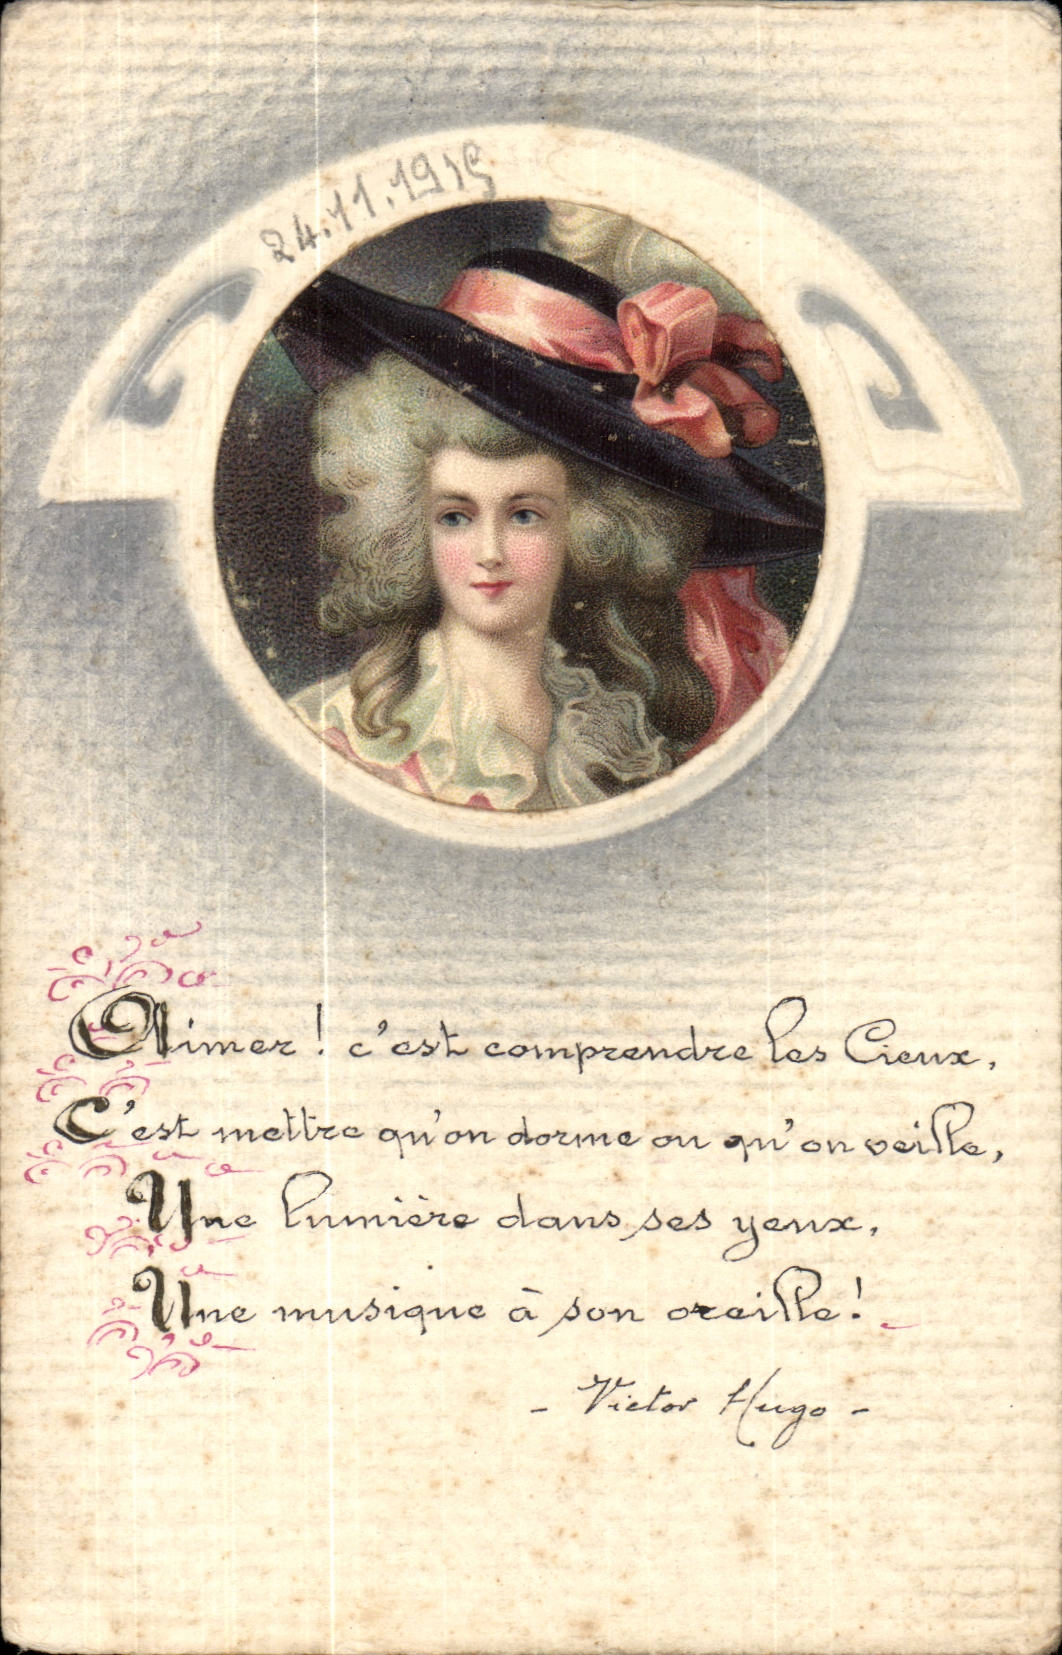 24.11.1915
Aimer! c'est comprendre les Cieux,
C'est mettre qu'on dorme ou qu'on veille,
Une lumière dans ses yeux,
Une musique à son oreille!
- Victor Hugo -